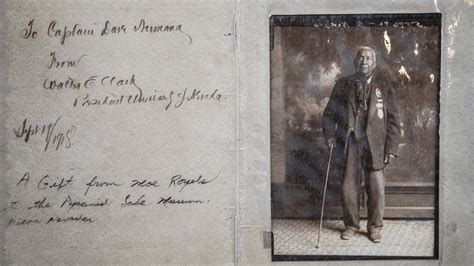 To Captain Dave Numana
From
Walter E Clark
President University of Nevada
Sept 18/
1918
A Gift from Moe Royels
to the Pyramid Lake Museum
Nixon Nevada